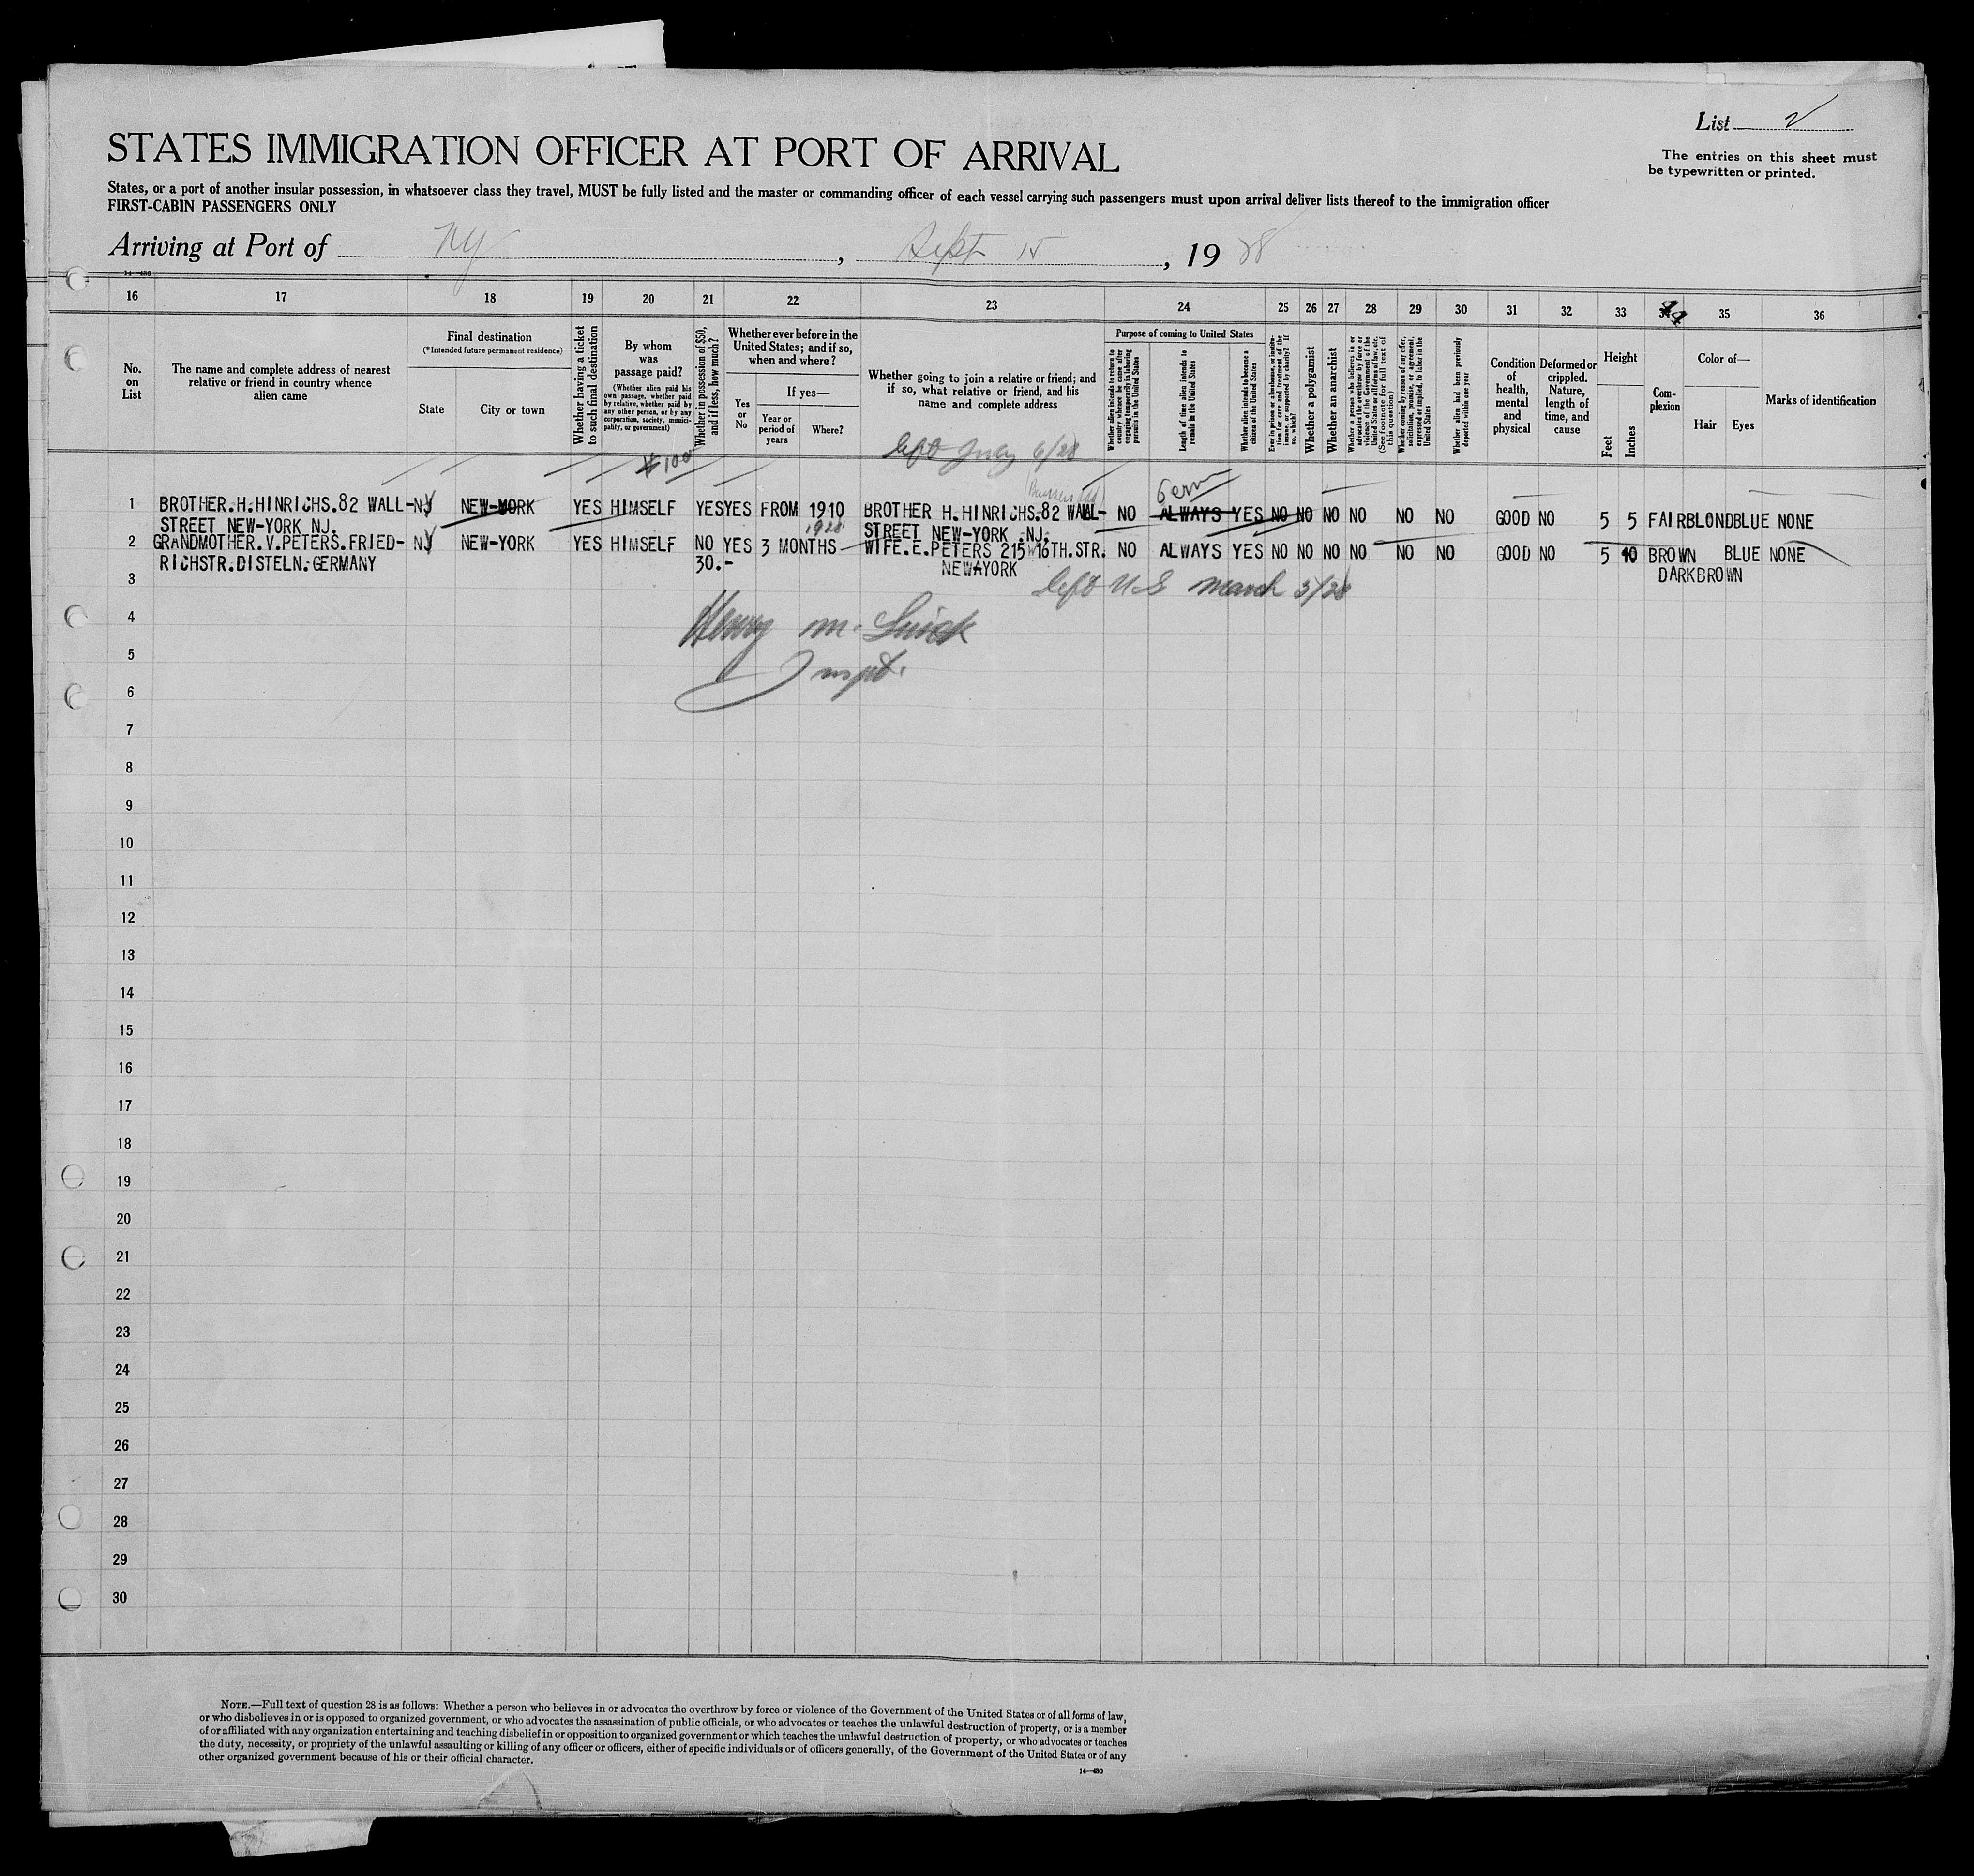 List 2
The entries on this sheet must
be typewritten or printed.
STATES IMMIGRATION OFFICER AT PORT OF ARRIVAL
States, or a port of another insular possession, in whatsoever class they travel, MUST be fully listed and the master or commanding officer of each vessel carrying such passengers must upon arrival deliver lists thereof to the immigration officer
FIRST-CABIN PASSENGERS ONLY
Arriving at Port of NY, Sept 15, 1928
14—480
16 17 18 19 20 21 22 23 24 25 26 27 28 29 30 31 32 33 34 35 36
No. on List
The name and complete address of nearest relative or friend in country whence alien came
Final destination
(*Intended future permanent residence)
State
City or town
Whether having a ticket to such final destination
By whom was passage paid?
(Whether alien paid his own passage, whether paid by relative, whether paid by any other person, or by any corporation, society, municipality, or government)
Whether in possession of $50, and if less, how much?
Whether ever before in the United States; and if so, when and where?
Yes or No
If yes—
Year or period of years
Where?
Whether going to join a relative or friend; and if so, what relative or friend, and his name and complete address
Purpose of coming to United States
Whether alien intends to return to country whence he came after engaging temporarily in laboring pursuits in the United States
Length of time alien intends to remain in the United States
Whether alien intends to become a citizen of the United States
Ever in prison or almshouse, or institution for care and treatment of the insane, or supported by charity? If so, which?
Whether a polygamist
Whether an anarchist
Whether a person who believes in or advocates the overthrow by force or violence of the Government of the United States or all forms of law, etc. (See footnote for full text of this question)
Whether coming by reason of any offer, solicitation, promise, or agreement, expressed or implied, to labor in the United States
Whether alien had been previously deported within one year
Condition of health, mental and physical
Deformed or crippled. Nature, length of time, and cause
Height
Feet
Inches
Complexion
Color of—
Hair
Eyes
Marks of identification
left July 6/28
$100
1 BROTHER.H.HINRICHS.82 WALL- NY NEW-YORK YES HIMSELF YES YES FROM 1910 BROTHER H.HINRICHS.82 WALL- NO ALWAYS YES NO NO NO NO NO NO GOOD NO 5 5 FAIR BLOND BLUE NONE
STREET NEW-YORK NJ. 1928 STREET NEW-YORK .NJ.
2 GRANDMOTHER.V.PETERS.FRIED- NY NEW-YORK YES HIMSELF NO YES 3 MONTHS WIFE.E.PETERS 215 W 16TH.STR. NO ALWAYS YES NO NO NO NO NO NO GOOD NO 5 10 BROWN BLUE NONE
RICHSTR.DISTELN.GERMANY 30.- NEW-YORK DARKBROWN
3 left US March 3/28
4 Henry M.
5 Inspt.
6
7
8
9
10
11
12
13
14
15
16
17
18
19
20
21
22
23
24
25
26
27
28
29
30
NOTE.—Full text of question 28 is as follows: Whether a person who believes in or advocates the overthrow by force or violence of the Government of the United States or of all forms of law,
or who disbelieves in or is opposed to organized government, or who advocates the assassination of public officials, or who advocates or teaches the unlawful destruction of property, or is a member
of or affiliated with any organization entertaining and teaching disbelief in or opposition to organized government or which teaches the unlawful destruction of property, or who advocates or teaches
the duty, necessity, or propriety of the unlawful assaulting or killing of any officer or officers, either of specific individuals or of officers generally, of the Government of the United States or of any
other organized government because of his or their official character.
14—480